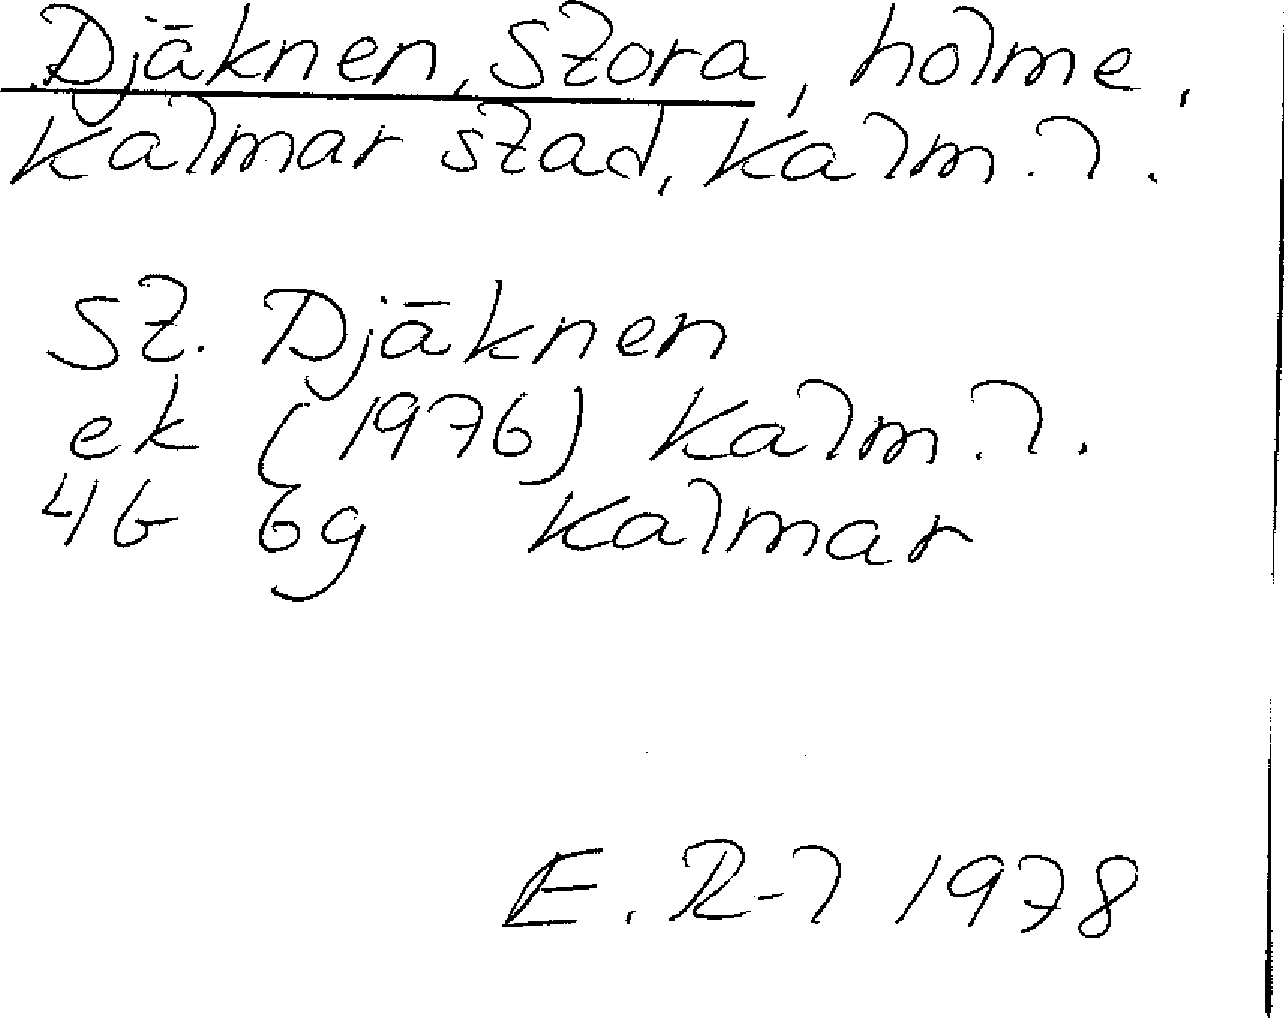 Djäknen, Stora, holme,
Kalmar stad, Kalm. l.
St. Djäknen
ek (1976) Kalm. l.
4G 6g Kalmar
E. R-l 1978